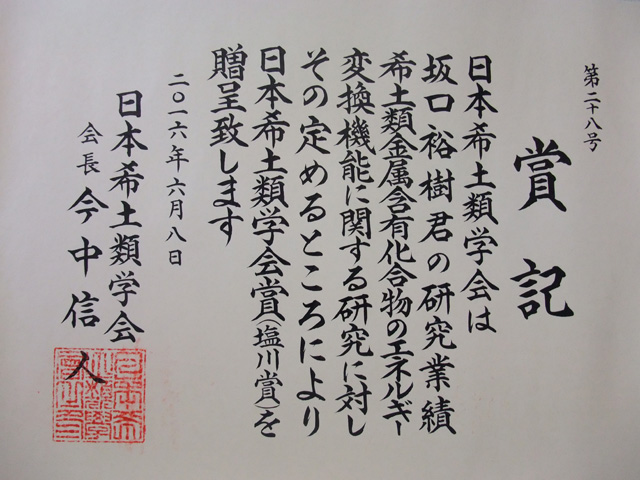 第二十八号
賞記
日本希土類学会は
坂口裕樹君の研究業績
希土類金属含有化合物のエネルギー
変換機能に関する研究に対し
その定めるところにより
日本希土類学会賞(塩川賞)を
贈呈致します
二〇一六年六月八日
日本希土類学会
会長 今中信人